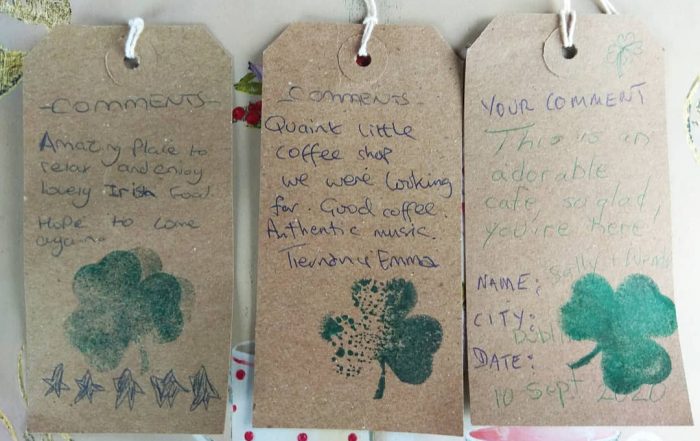 -COMMENTS-
Amazing Place to
relax and enjoy
lovely Irish Food.
Hope to come
again.
-COMMENTS-
Quaint little
coffee shop
we were looking
for. Good coffee.
Authentic music.
Tiernan & Emma
YOUR COMMENT
This is an
adorable
cafe, so glad
you're here
Sally +
NAME:
CITY:
Dublin
DATE:
10 Sept 2020